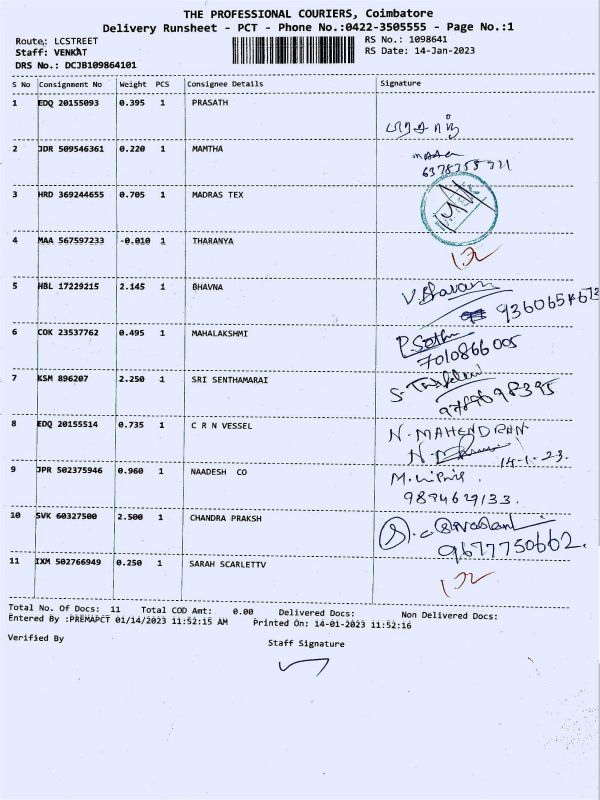 THE PROFESSIONAL COURIERS, Coimbatore
Delivery Runsheet - PCT - Phone No.:0422-3505555 - Page No.:1
Route: LCSTREET
RS No.: 1098641
Staff: VENKAT
RS Date: 14-Jan-2023
DRS No.: DCJB109864101
S No Consignment No Weight PCS Consignee Details Signature
1 EDQ 20155093 0.395 1 PRASATH
2 JDR 509546361 0.220 1 MAMTHA
3 HRD 369244655 0.705 1 MADRAS TEX
4 MAA 567597233 -0.010 1 THARANYA
5 HBL 17229215 2.145 1 BHAVNA
9360654673
6 COK 23537762 0.495 1 MAHALAKSHMI
7010866005
7 KSM 896207 2.250 1 SRI SENTHAMARAI
9789698395
8 EDQ 20155514 0.735 1 C R N VESSEL N. MAHENDRAN
14-1-23.
9 JPR 502375946 0.960 1 NAADESH CO
9894629133.
10 SVK 60327500 2.500 1 CHANDRA PRAKSH
9677750662.
11 IXM 502766949 0.250 1 SARAH SCARLETTV
Total No. Of Docs: 11 Total COD Amt: 0.00 Delivered Docs: Non Delivered Docs:
Entered By :PREMAPCT 01/14/2023 11:52:15 AM Printed On: 14-01-2023 11:52:16
Verified By Staff Signature